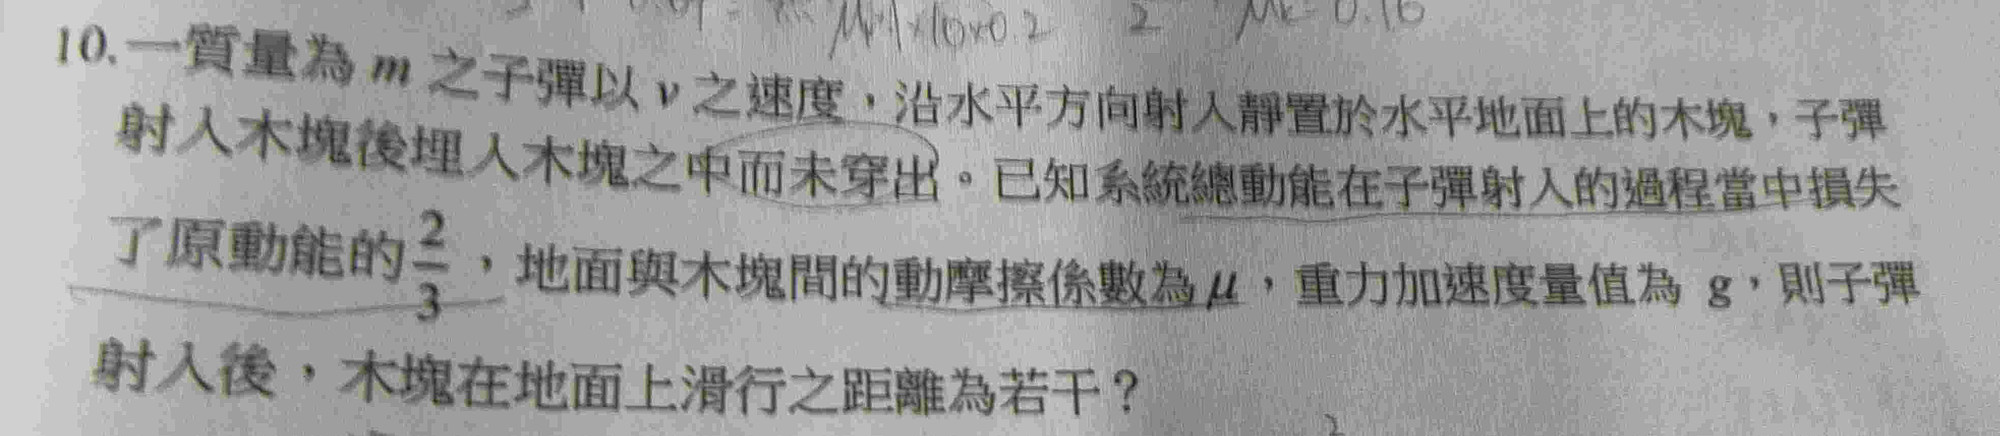 μk×1×10×0.2 2 μk=0.16
10.一質量為 m 之子彈以 v 之速度，沿水平方向射入靜置於水平地面上的木塊，子彈
射入木塊後埋入木塊之中而未穿出。已知系統總動能在子彈射入的過程當中損失
了原動能的2/3，地面與木塊間的動摩擦係數為μ，重力加速度量值為 g，則子彈
射入後，木塊在地面上滑行之距離為若干？
2